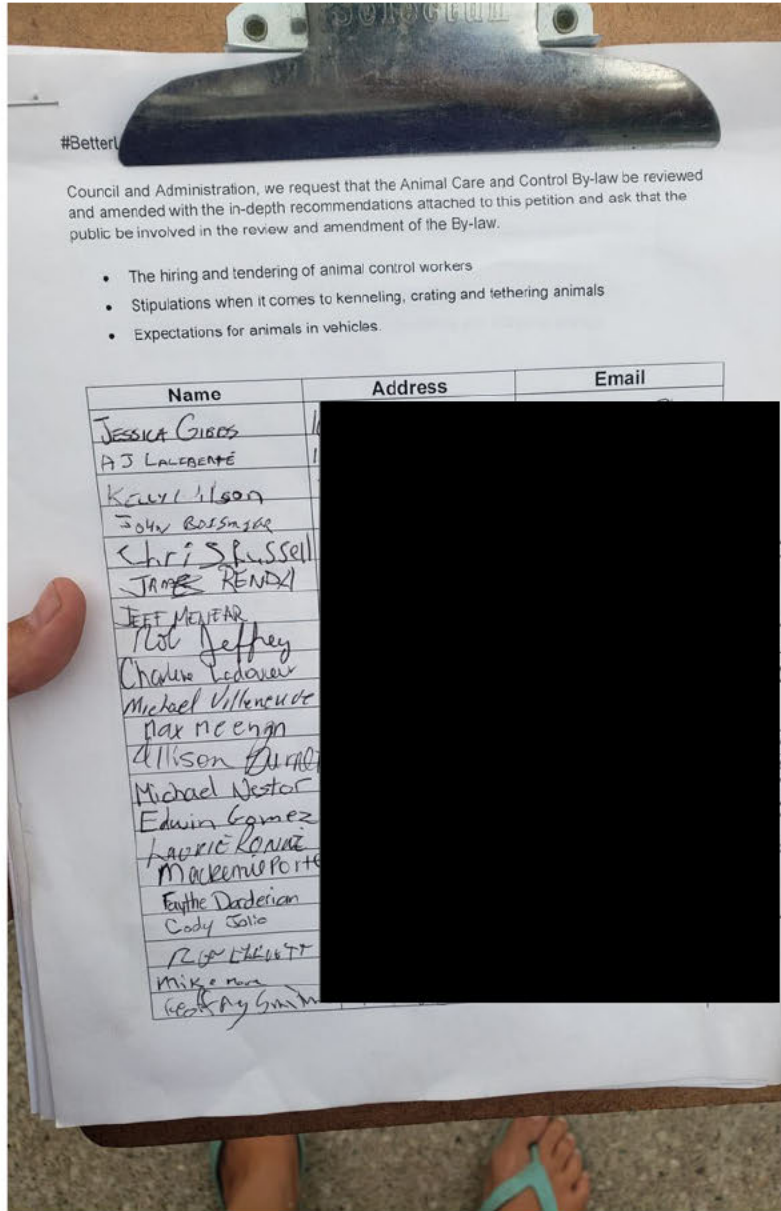 #Better
Council and Administration, we request that the Animal Care and Control By-law be reviewed
and amended with the in-depth recommendations attached to this petition and ask that the
public be involved in the review and amendment of the By-law.
• The hiring and tendering of animal control workers
• Stipulations when it comes to kenneling, crating and tethering animals
• Expectations for animals in vehicles.
Name Address Email
JESSICA GIBBS
AJ LALIBERTÉ
KELLY Wilson
JOHN
Chris Russell
JAMES RENDA
JEFF MENEAR
Jeffrey
Charlene
Michael Villeneuve
max meengn
Allison
Michael Nestor
Edwin Gomez
LAURIE
Mackenzie Porte
Faythe Darderian
Cody Jolie
RON ELLIOTT
mike
Geoffrey Smith